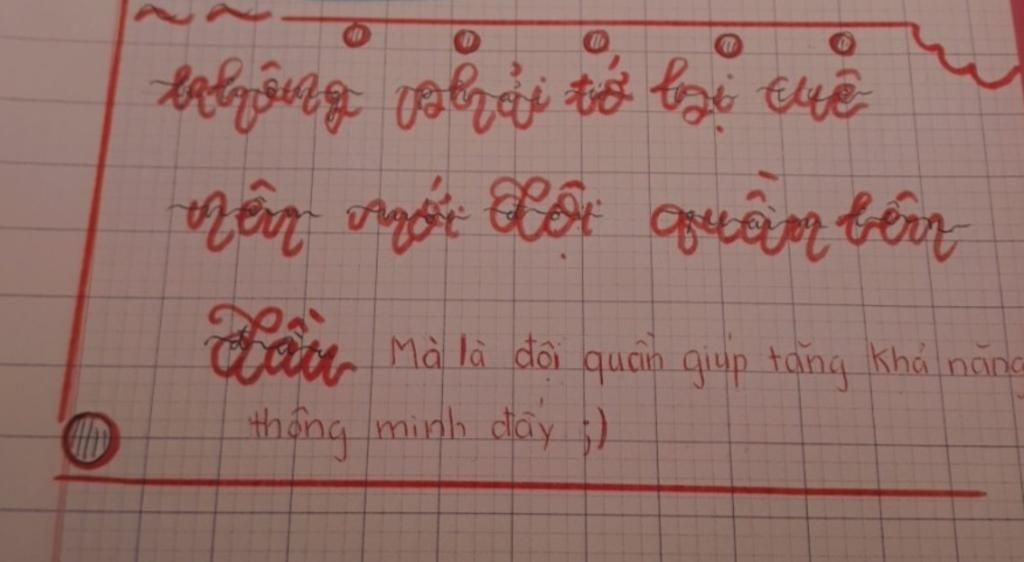 không phải tớ bại xuề
nên mới đội quần lên
đầu Mà là đội quần giúp tăng khả năng
thông minh đấy ;)